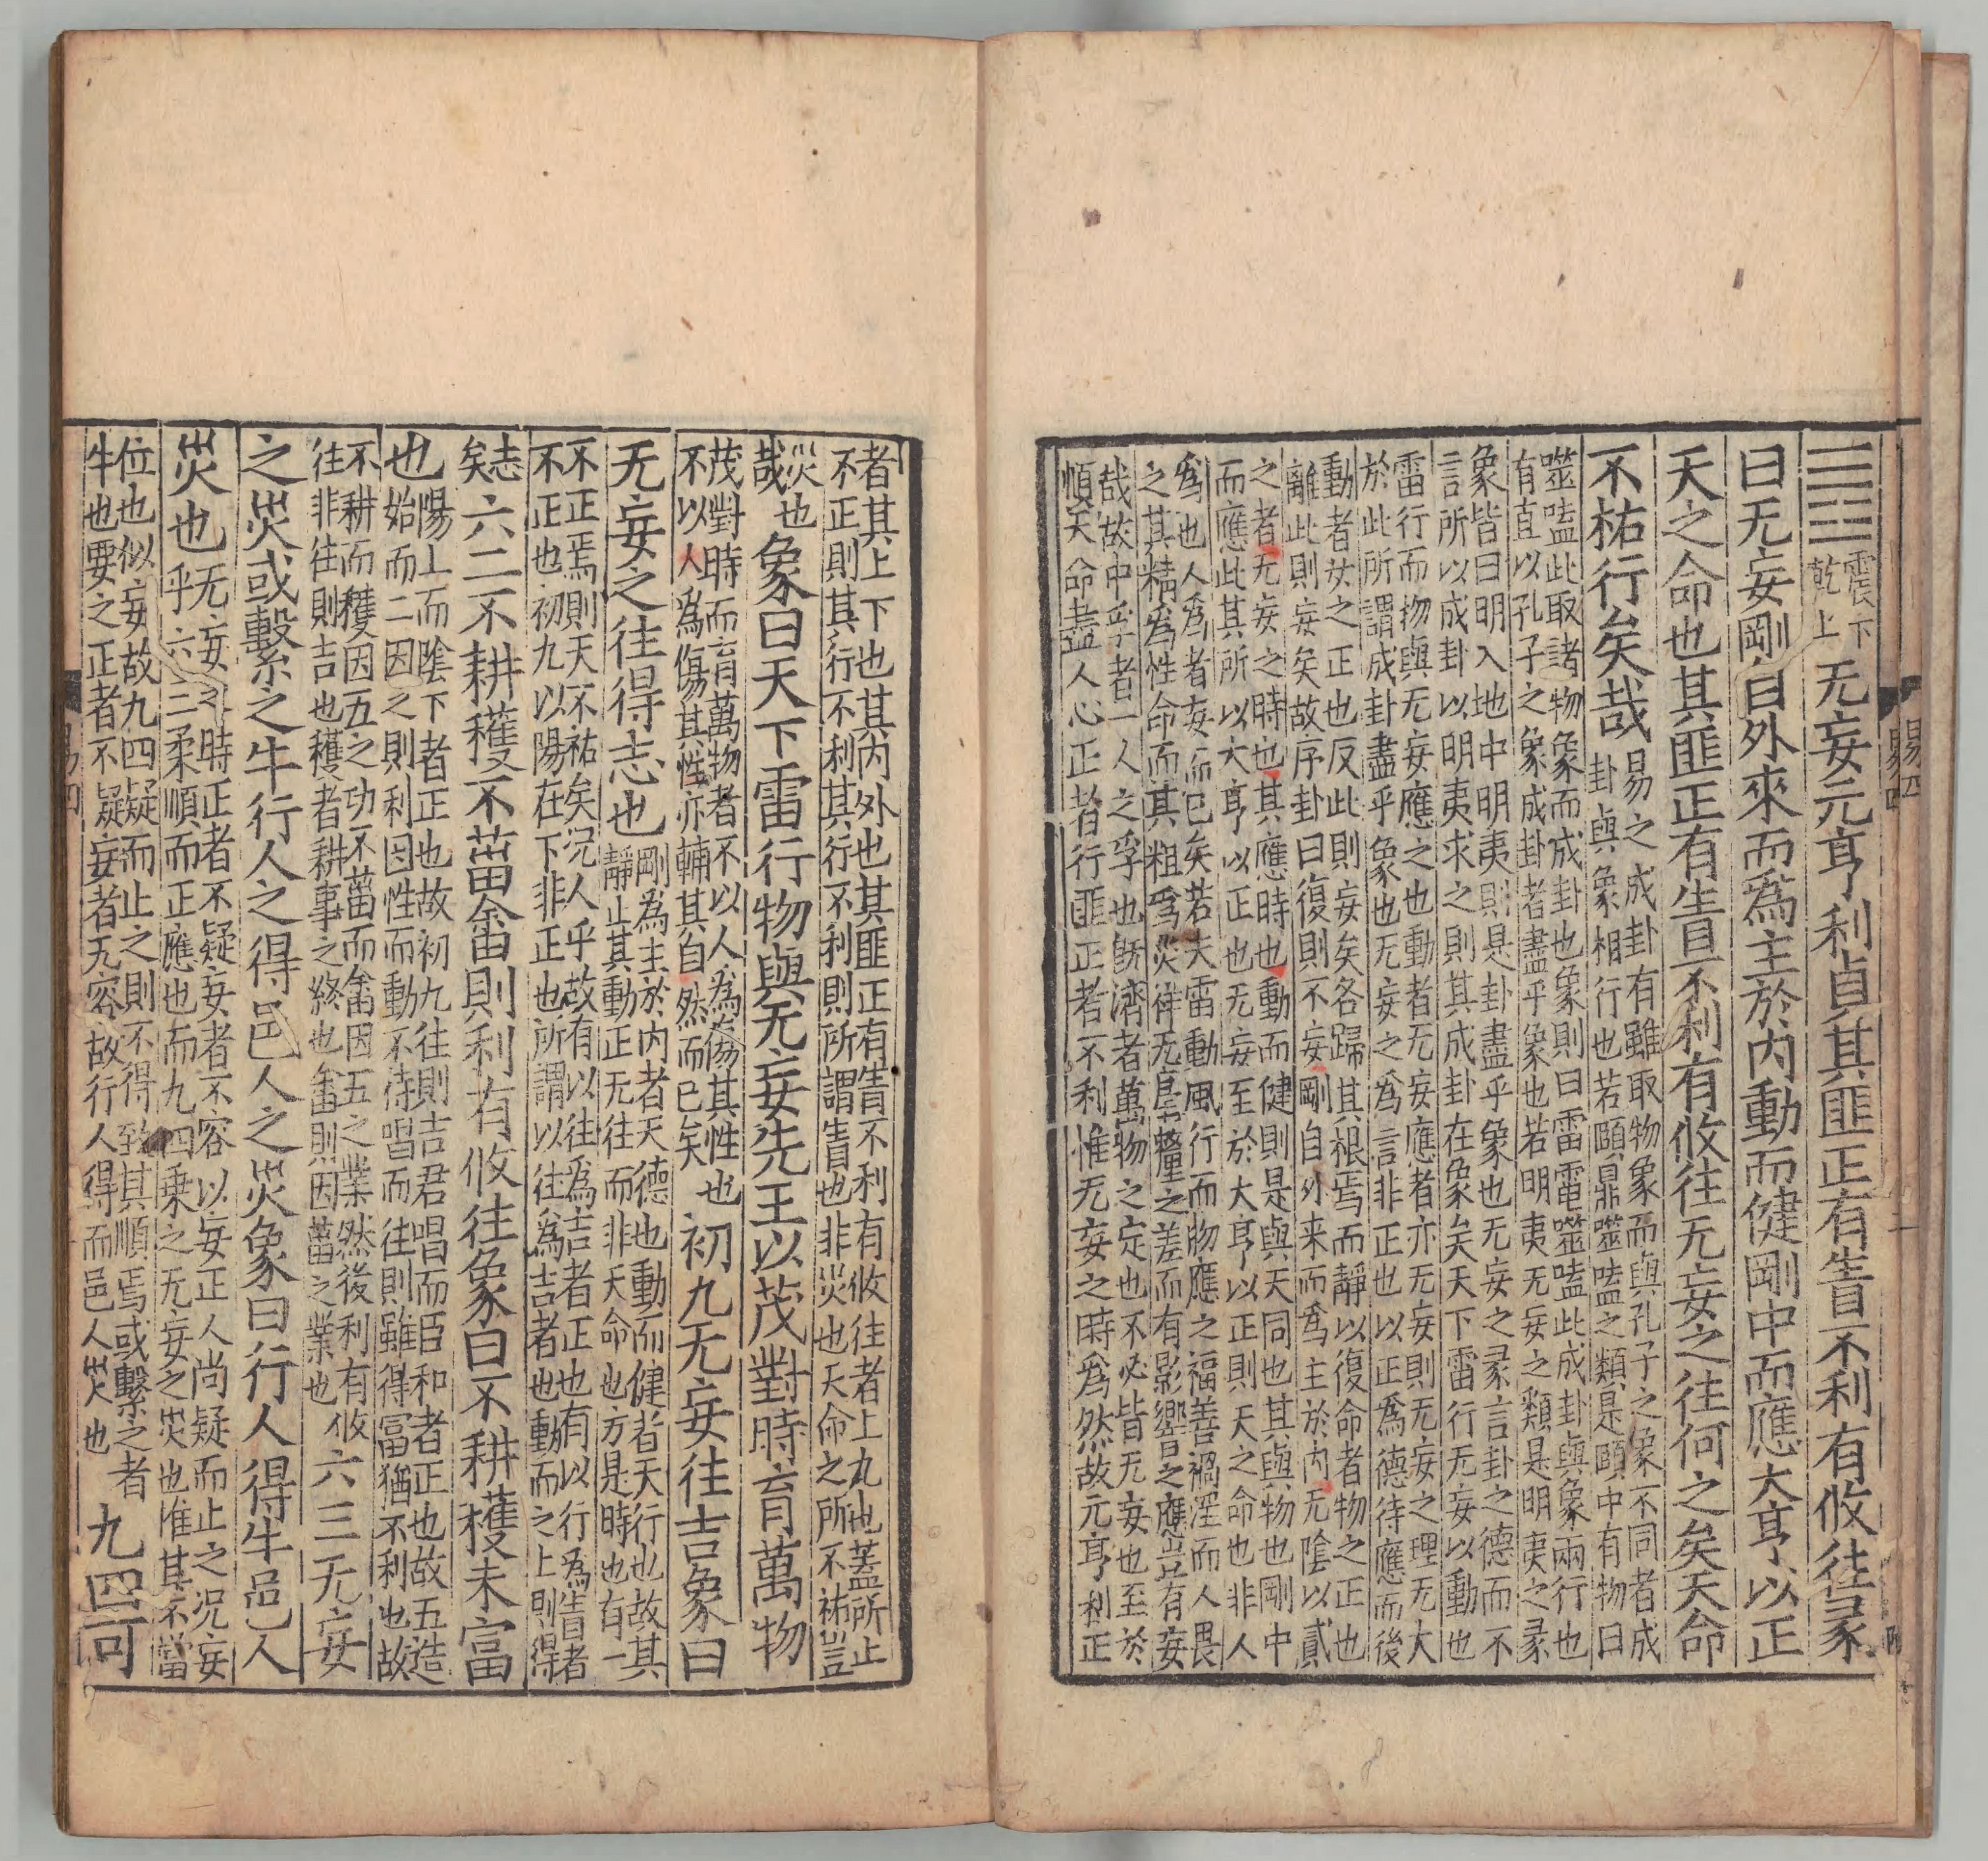 震下
乾上
无妄元亨利貞其匪正有眚不利有攸往彖
曰无妄剛自外來而爲主於內動而健剛中而應大亨以正
天之命也其匪正有眚不利有攸往无妄之往何之矣天命
不祐行矣哉
易之成卦有雖取物象而與孔子之象不同者成
卦與象相行也若頤鼎噬嗑之類是頤中有物曰
噬嗑此取諸物象而成卦也象則曰雷電噬嗑此成卦與象兩行也
有直以孔子之象成卦者盡乎象也若明夷无妄之類是明夷之彖
象皆曰明入地中明夷則是卦盡乎象也无妄之彖言卦之德而不
言所以成卦以明夷求之則其成卦在象矣天下雷行无妄以動也
雷行而物與无妄應之也動者无妄應者亦无妄則无妄之理无大
於此所謂成卦盡乎象也无妄之爲言非正也以正爲德待應而後
動者妄之正也反此則妄矣各歸其根焉而靜以復命者物之正也
離此則妄矣故序卦曰復則不妄剛自外來而爲主於內无陰以貳
之者无妄之時也其應時也動而健則是與天同也其與物也剛中
而應此其所以大亨以正也无妄至於大亨以正則天之命也非人
爲也人爲者妄而已矣若夫雷動風行而物應之福善禍淫而人畏
之其精爲性命而其粗爲災祥无毫釐之差而有影響之應豈有妄
哉故中孚者一人之孚也旣濟者萬物之定也不必皆无妄也至於
順天命盡人心正者行匪正者不利惟无妄之時爲然故元亨利正
者其上下也其內外也其匪正有眚不利有攸往者上九也蓋所止
不正則其行不利其行不利則所謂眚也非災也天命之所不祐豈
災也
哉
象曰天下雷行物與无妄先王以茂對時育萬物
茂對時而育萬物者不以人爲傷其性也
不以人爲傷其性亦輔其自然而已矣
初九无妄往吉象曰
无妄之往得志也
剛爲主於內者天德也動而健者天行也故其
靜止其動正无往而非天命也方是時也有一
不正焉則天不祐矣況人乎故有以往爲吉者正也有以行爲眚者
不正也初九以陽在下非正也所謂以往爲吉者也動而之上則得
志
矣
六二不耕穫不菑畬則利有攸往象曰不耕穫未富
也
陽上而陰下者正也故初九往則吉君唱而臣和者正也故五造
始而二因之則利因性而動不待唱而往則雖得富猶不利也故
不耕而穫因五之功不菑而畬因五之業然後利有攸
往非往則吉也穫者耕事之終也畬則因菑之業也
六三无妄
之災或繫之牛行人之得邑人之災象曰行人得牛邑人
災也
无妄之時正者不疑妄者不容以妄正人尚疑而止之況妄
乎六二柔順而正應也而九四乘之无妄之災也惟其不當
位也似妄故九四疑而止之則不得致其順焉或繫之者
牛也要之正者不疑妄者无容故行人得而邑人災也
九四可
易四
二